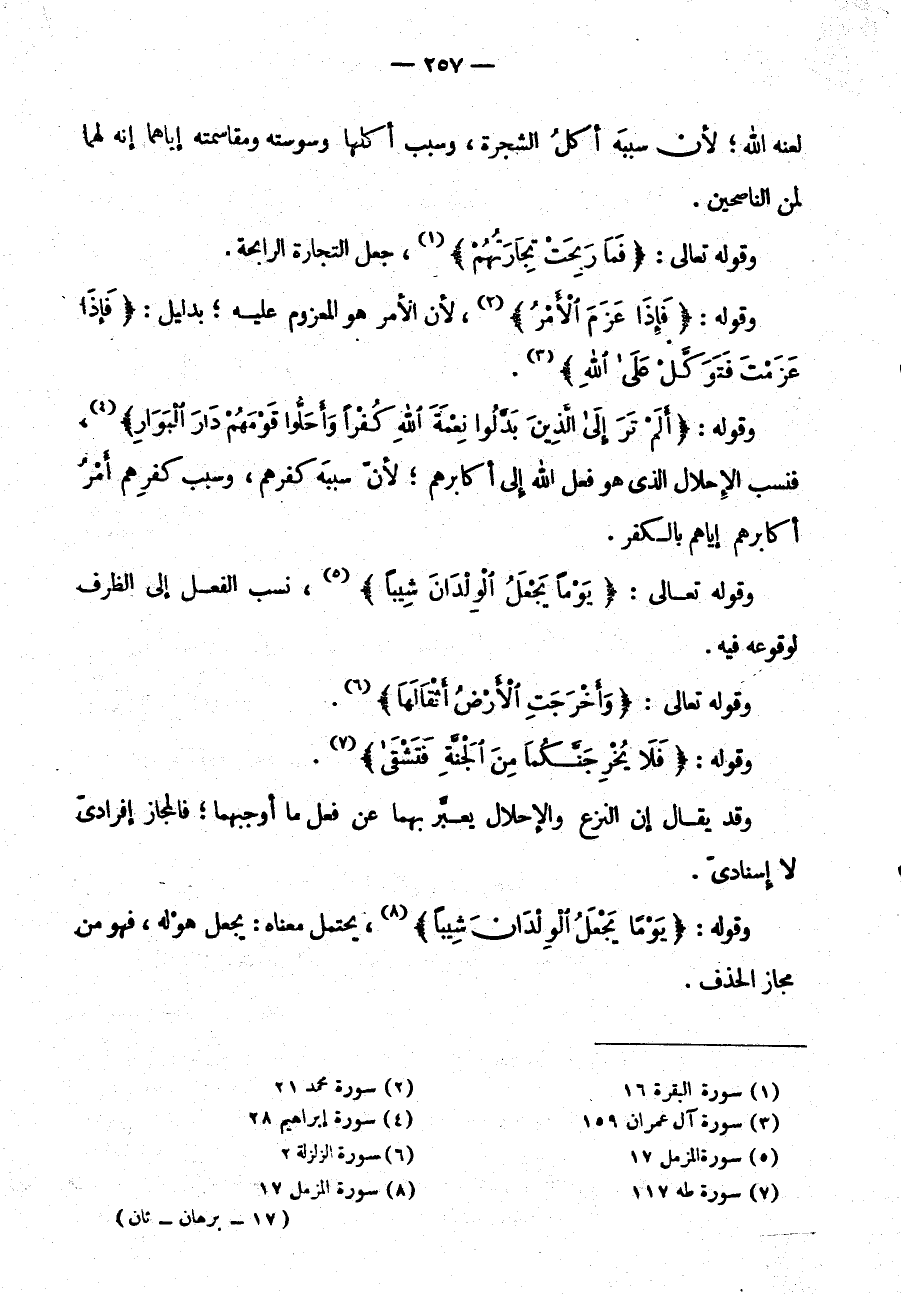 — ٢٥٧ —
لعنه الله ؛ لأن سببَه أكلُ الشجرة ، وسبب أكلها وسوسته ومقاسمته إياهما إنه لهما
لمن الناصحين .
وقوله تعالى : ﴿ فَمَا رَبِحَتْ تِجَارَتُهُمْ ﴾ (١) ، جعل التجارة الرابحة .
وقوله : ﴿ فَإِذَا عَزَمَ ٱلْأَمْرُ ﴾ (٢) ، لأن الأمر هو المعزوم عليه ؛ بدليل : ﴿ فَإِذَا
عَزَمْتَ فَتَوَكَّلْ عَلَى ٱللهِ ﴾ (٣) .
وقوله : ﴿ أَلَمْ تَرَ إِلَى ٱلَّذِينَ بَدَّلُوا نِعْمَةَ ٱللهِ كُفْرًا وَأَحَلُّوا قَوْمَهُمْ دَارَ ٱلْبَوَارِ ﴾ (٤) ،
فنسب الإحلال الذى هو فعل الله إلى أكابرهم ؛ لأنّ سببَه كفرهم ، وسبب كفرِهم أَمْرُ
أكابرهم إياهم بالكفر .
وقوله تعالى : ﴿ يَوْمًا يَجْعَلُ ٱلْوِلْدَانَ شِيبًا ﴾ (٥) ، نسب الفعل إلى الظرف
لوقوعه فيه .
وقوله تعالى : ﴿ وَأَخْرَجَتِ ٱلْأَرْضُ أَثْقَالَهَا ﴾ (٦) .
وقوله : ﴿ فَلَا يُخْرِجَنَّكُمَا مِنَ ٱلْجَنَّةِ فَتَشْقَىٰ ﴾ (٧) .
وقد يقال إن النزع والإحلال يعبَّر بهما عن فعل ما أوجبهما ؛ فالمجاز إفرادىّ
لا إسنادىّ .
وقوله : ﴿ يَوْمًا يَجْعَلُ ٱلْوِلْدَانَ شِيبًا ﴾ (٨) ، يحتمل معناه : يجعل هوْله ، فهو من
مجاز الحذف .
(١) سورة البقرة ١٦ (٢) سورة محمد ٢١
(٣) سورة آل عمران ١٥٩ (٤) سورة إبراهيم ٢٨
(٥) سورة المزمل ١٧ (٦) سورة الزلزلة ٢
(٧) سورة طه ١١٧ (٨) سورة المزمل ١٧
(١٧ – برهان – ثان)